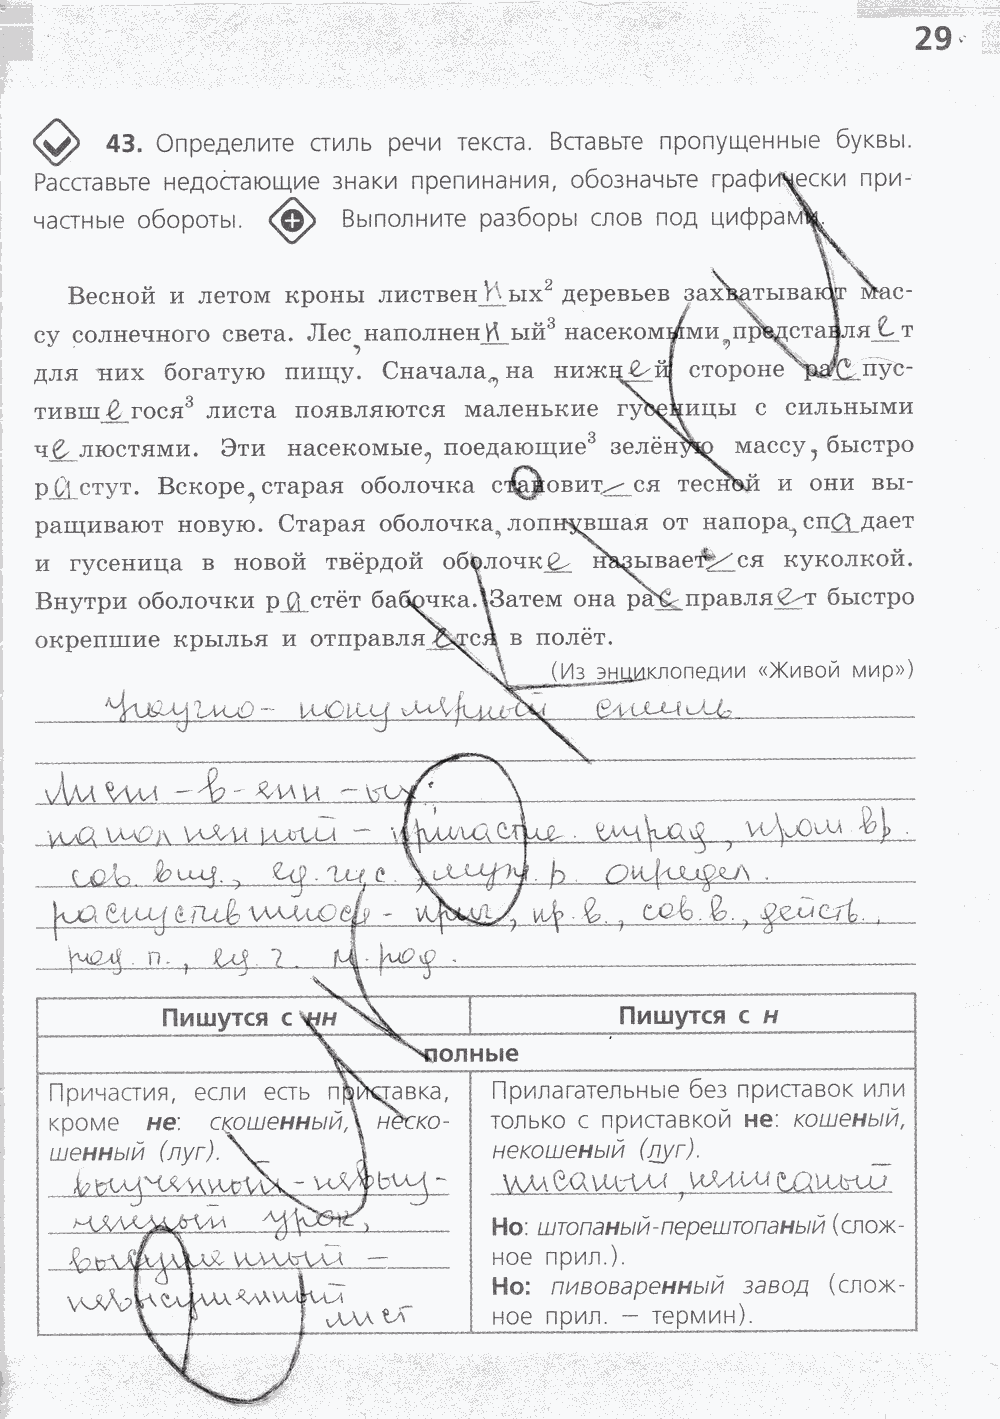 29
43. Определите стиль речи текста. Вставьте пропущенные буквы.
Расставьте недостающие знаки препинания, обозначьте графически при-
частные обороты. Выполните разборы слов под цифрами.
Весной и летом кроны лиственных² деревьев захватывают мас-
су солнечного света. Лес, наполненный³ насекомыми, представляет
для них богатую пищу. Сначала, на нижней стороне распус-
тившегося³ листа появляются маленькие гусеницы с сильными
челюстями. Эти насекомые, поедающие³ зелёную массу, быстро
растут. Вскоре, старая оболочка становит–ся тесной и они вы-
ращивают новую. Старая оболочка, лопнувшая от напора, спадает
и гусеница в новой твёрдой оболочке называет–ся куколкой.
Внутри оболочки растёт бабочка. Затем она расправляет быстро
окрепшие крылья и отправляется в полёт.
(Из энциклопедии «Живой мир»)
Научно-популярный стиль
Лист-в-енн-ых.
наполненный – причастие. страд, прош вр.
сов. вид., ед. чис., муж. р. определ.
распустившиося - прич, пр. в., сов. в., действ.,
род. п., ед. ч. м. род.
Пишутся с нн
Пишутся с н
полные
Причастия, если есть приставка,
кроме не: скошенный, неско-
шенный (луг).
выученный - невыу-
ченный урок,
высушенный –
невысушенный
лист
Прилагательные без приставок или
только с приставкой не: кошеный,
некошеный (луг).
писаный, неписаный
Но: штопаный-перештопаный (слож-
ное прил.).
Но: пивоваренный завод (слож-
ное прил. – термин).